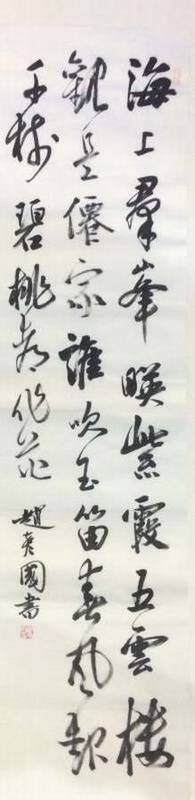 海上羣峯暎紫霞五雲楼
觀是僊家誰吹玉笛春風起
千樹碧桃都作花 趙彦國書